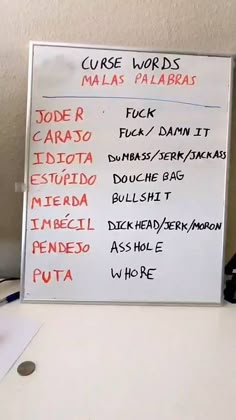 CURSE WORDS
MALAS PALABRAS
JODER FUCK
CARAJO FUCK/ DAMN IT
IDIOTA DUMBASS/JERK/JACKASS
ESTÚPIDO DOUCHE BAG
MIERDA BULLSHIT
IMBÉCIL DICKHEAD/JERK/MORON
PENDEJO ASSHOLE
PUTA WHORE